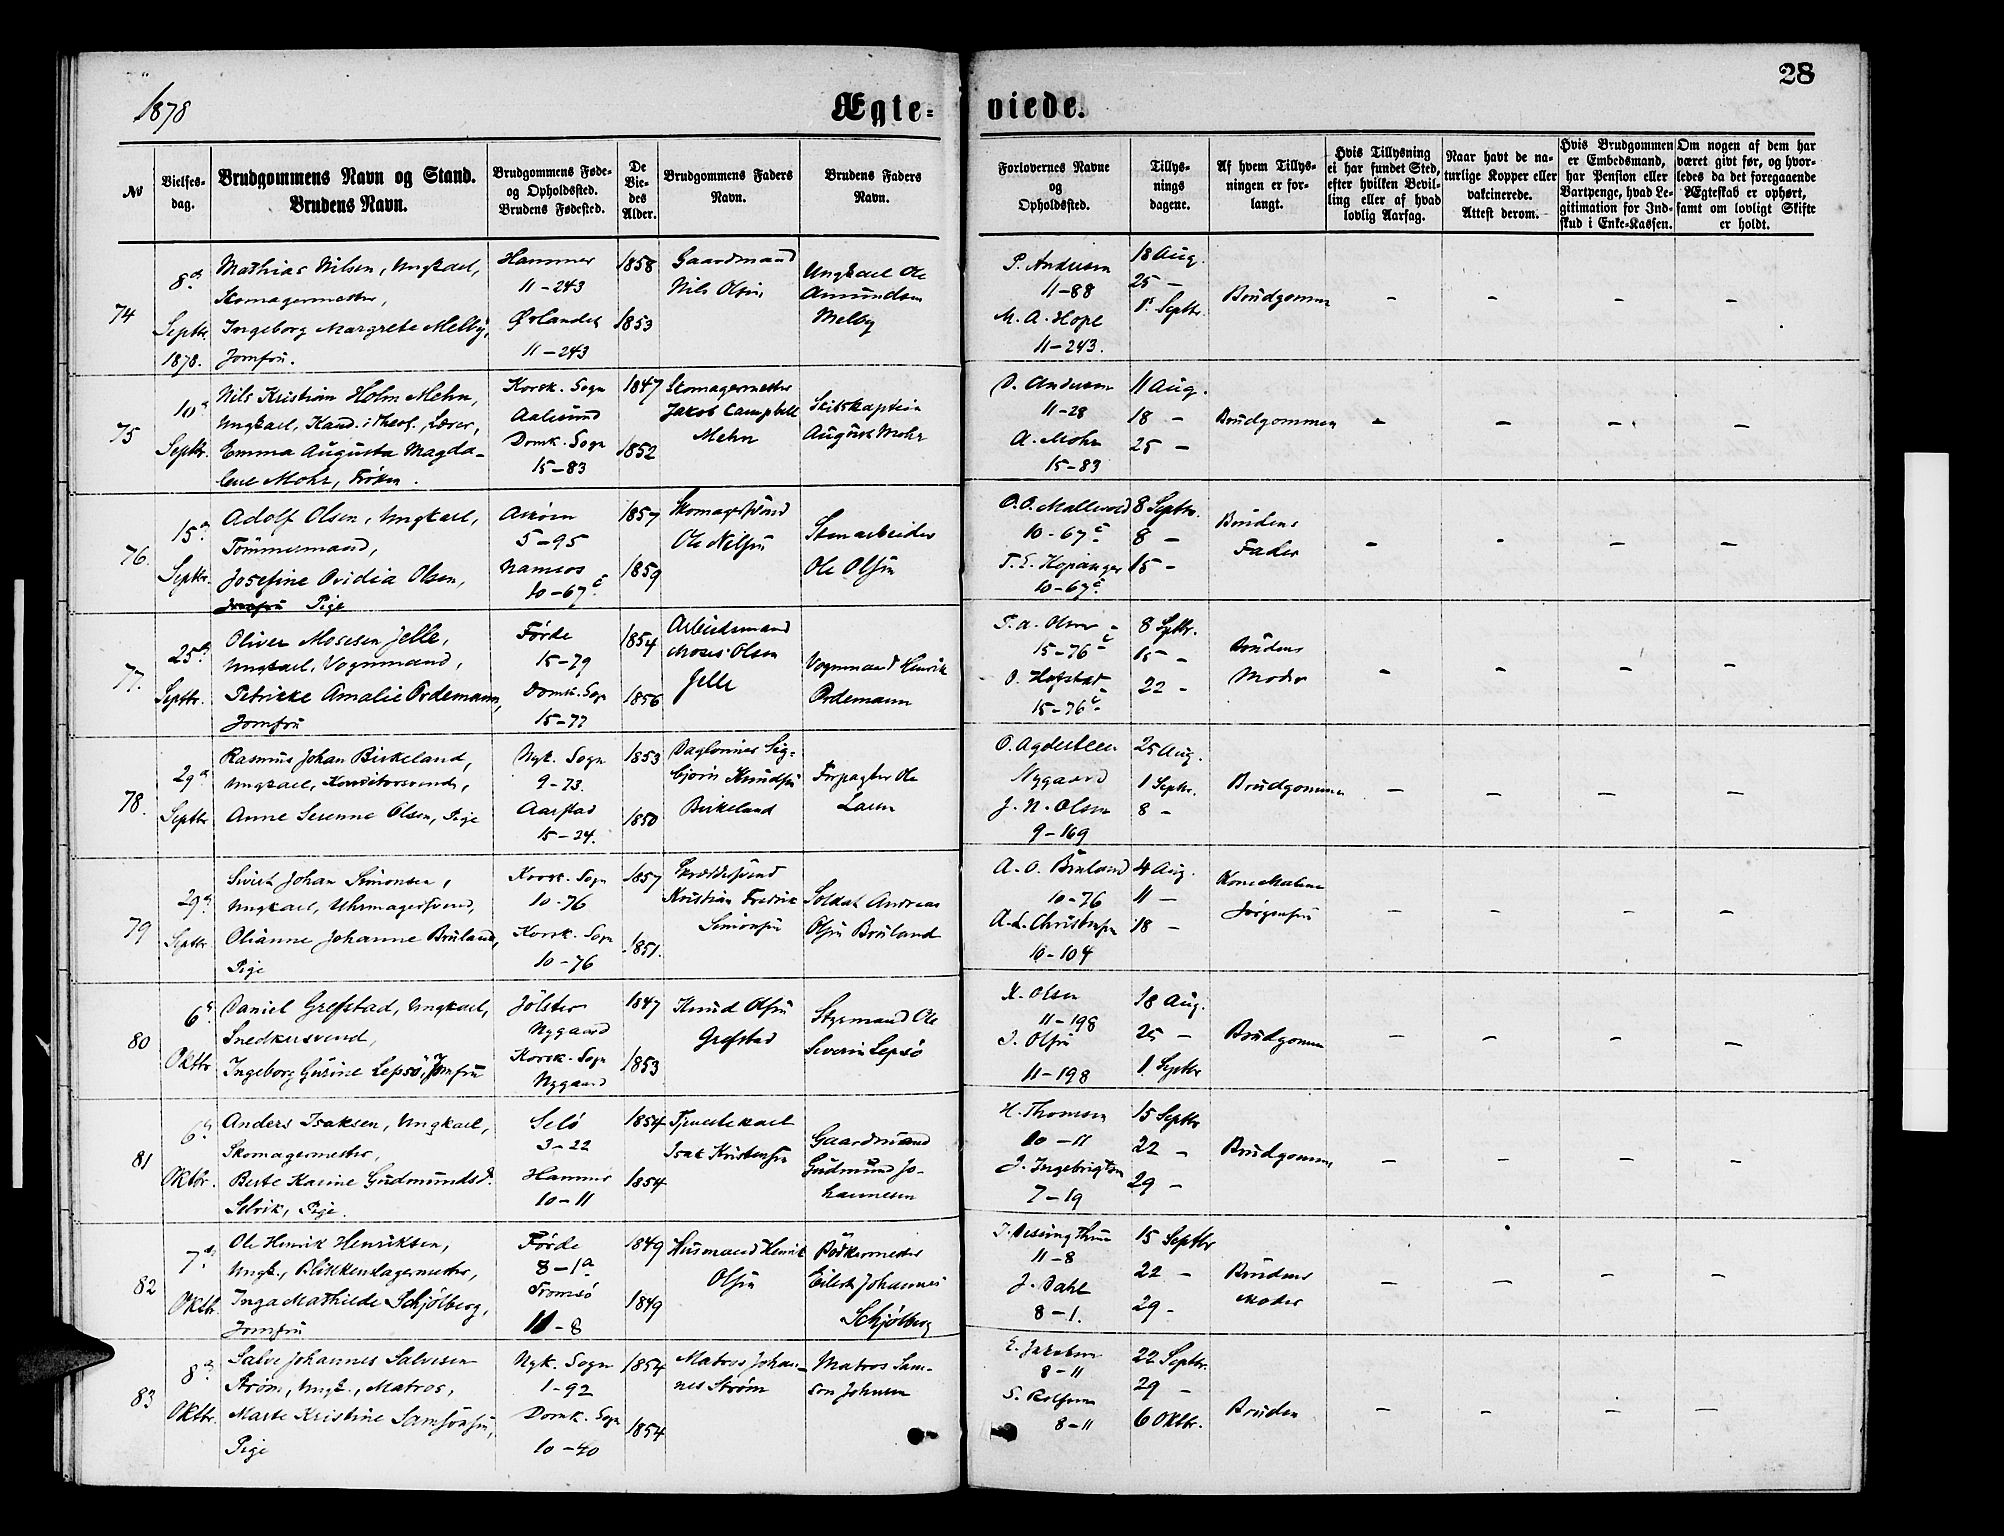 1878
Ægte-
viede.
28
No
Vielses-
dag.
Brudgommens Navn og Stand.
Brudens Navn.
Brudgommens Føde-
og Opholdssted.
Brudens Fødested.
De
Vie-
des
Alder.
Brudgommens Faders
Navn.
Brudens Faders
Navn.
Forlovernes Navne
og
Opholdssted.
Tillys-
nings
dagene.
Af hvem Tillys-
ningen er for-
langt.
Hvis Tillysning
ei har fundet Sted,
efter hvilken Bevil-
ling eller af hvad
lovlig Aarsag.
Naar havt de na-
turlige Kopper eller
vakcinerede.
Attest derom.
Hvis Brudgommen
er Embedsmand,
har Pension eller
Vartpenge, hvad Le-
gitimation for Ind-
skud i Enke-Kassen.
Om nogen af dem har
været givt før, og hvor-
ledes da det foregaaende
Ægteskab er ophørt,
samt om lovligt Skifte
er holdt.
74
8de
Septbr.
1878.
Mathias Nilsen, Ungkael,
Skomagermester,
Ingeborg Margrete Melby,
Jomfru.
Hammer
11-243
Ørlandet
11-243
1858
1853
Gaardmand
Nils Olsen
Ungkael Ole
Amundsen
Melby
P. Andersen
11-88
M. A. Hope
11-243.
18 Aug.
25 -
1. Septbr.
Brudgommen
- - - -
75
10de
Septbr.
Nils Kristian Holm Mehn,
Ungkael, Kand. i Theol., Lærer,
Emma Augusta Magda-
lene Mohr, Frøken.
Korsk. Sogn
Aalesund
Domk. Sogn
15-83
1847
1852
Skomagermester
Jakob Campbell
Mehn
Skibskaptein
August Mohr
D. Andersen
11-28
A. Mohr
15-83
11 Aug.
18 -
25 -
Brudgommen
- - - -
76.
15de
Septbr.
Adolf Olsen, Ungkael,
Tømmermand,
Josefine Ovidia Olsen,
Jomfru Pige
Askøen
5-95
Namsos
10-67c
1857
1859
Skomagersvend
Ole Nilsen
Stenarbeider
Ole Olsen
10-67c
T. E. Kopanger
10-67c
8 Septbr.
8 -
15 -
Brudens
Fader
- - - -
77.
25de
Septbr.
Oliver Mosesen Jelle,
Ungkael, Vognmand,
Petrikke Amalie Ordemann,
Jomfru
Førde
15-79
Domk. Sogn
15-77
1854
1856
Arbeidsmand
Moses Olsen
Jelle
Vognmand Henrik
Ordemann
P. A. Olsen
15-76c
O. Hopstad
15-76c
8 Septbr.
15 -
22 -
Brudens
Moder
- - - -
78.
29de
Septbr
Rasmus Johan Birkeland,
Ungkael, Konditorsvend,
Anne Serenne Olsen, Pige
Nyk. Sogn
9-73.
Aarstad
15-24.
1853
1850
Daglønner Sig-
bjørn Knudsen
Birkeland
Forpagter Ole
Larsen
O. Agdesteen
Nygaard
J. N. Olsen
9-169
25 Aug.
1 Septbr.
8 -
Brudgommen
- - - -
79
29de
Septbr
Sivert Johan Simonsen,
Ungkael, Uhrmagersvend,
Olianne Johanne Bruland,
Pige
Korsk. Sogn
10-76
Korsk. Sogn
10-76
1857
1851.
Skræddersvend
Kristian Fredrik
Simonsen
Soldat Andreas
Olsen Bruland
A. O. Bruland
10-76
A. L. Christensen
10-104
4 Aug.
11 -
18 -
Kone Malene
Jørgensen
- - - -
80
6te
Oktbr
Daniel Grefstad, Ungkael,
Snedkersvend,
Ingeborg Gurine Lepsø, Jomfru
Jølster
Nygaard
Korsk. Sogn
Nygaard
1847
1853
Knud Olsen
Grefstad
Styrmand Ole
Severin Lepsø
K. Olsen
11-198
J. Olsen
11-198
18 Aug.
25 -
1. Septbr
Brudgommen
- - - -
81
6te
Oktbr.
Anders Isaksen, Ungkael,
Skomagermester,
Berte Karine Gudmundsd.
Selvik, Pige.
Selø
3-22
Hammer
10-11
1854
1854
Tjenestekael
Isak Kristensen
Gaardmand
Gudmund Jo-
hannesen
H. Thomsen
10-11
J. Ingebrigtsen
7-19
15 Septbr
22 -
29 -
Brudgommen
- - - -
82
7de
Oktbr.
Ole Henrik Henriksen,
Ungk., Blikkenslagermester,
Inga Mathilde Schjølberg,
Jomfru
Førde
8-1a
Tromsø
11-8
1849
1849
Husmand Henrik
Olsen
Bødkermester
Eilert Johannes
Schjølberg
11-8
J. Dahl
8-1.
15 Septbr
22 -
29 -
Brudens
Moder
- - - -
83
8de
Oktbr.
Salve Johannes Salvesen
Strøm, Ungk., Matros,
Marte Kristine Samsonsen,
Pige
Nyk. Sogn
1-92
Domk. Sogn
10-40
1854
1854
Matros Johan-
nes Strøm
Matros Sam-
son Johnsen
E. Jakobsen
8-11
S. Rolfsen
8-11
22 Septbr.
29 -
6 Oktbr.
Bruden
- - - -